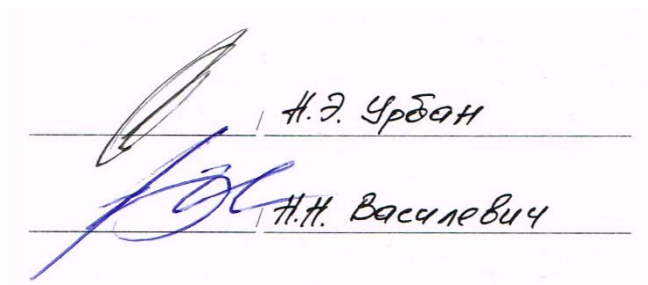 / Н.Э. Урбан
/ Н.Н. Василевич